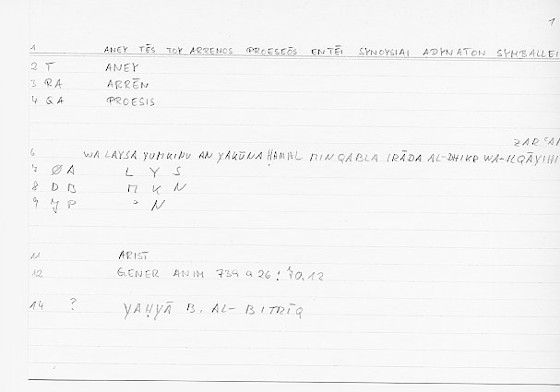 1
1 ANEY TĒS TOY ARRENOS PROESEŌS EN TĒI SYNOYSIAI ADYNATON SYMBALLEI
2 T ANEY
3 RA ARRĒN
4 GA PROESIS
ZAR
6 WA LAYSA YUMKINU AN YAKŪNA ḤAMAL MIN QABLA IRĀDA AL-DHIKR WA-ILQĀYIHI
7 ØA L Y S
8 DB M K N
9 P ʾ N
11 ARIST
12 GENER ANIM 739 A 26 : 70.12
14 ? YAḤYĀ B. AL-BITRĪQ